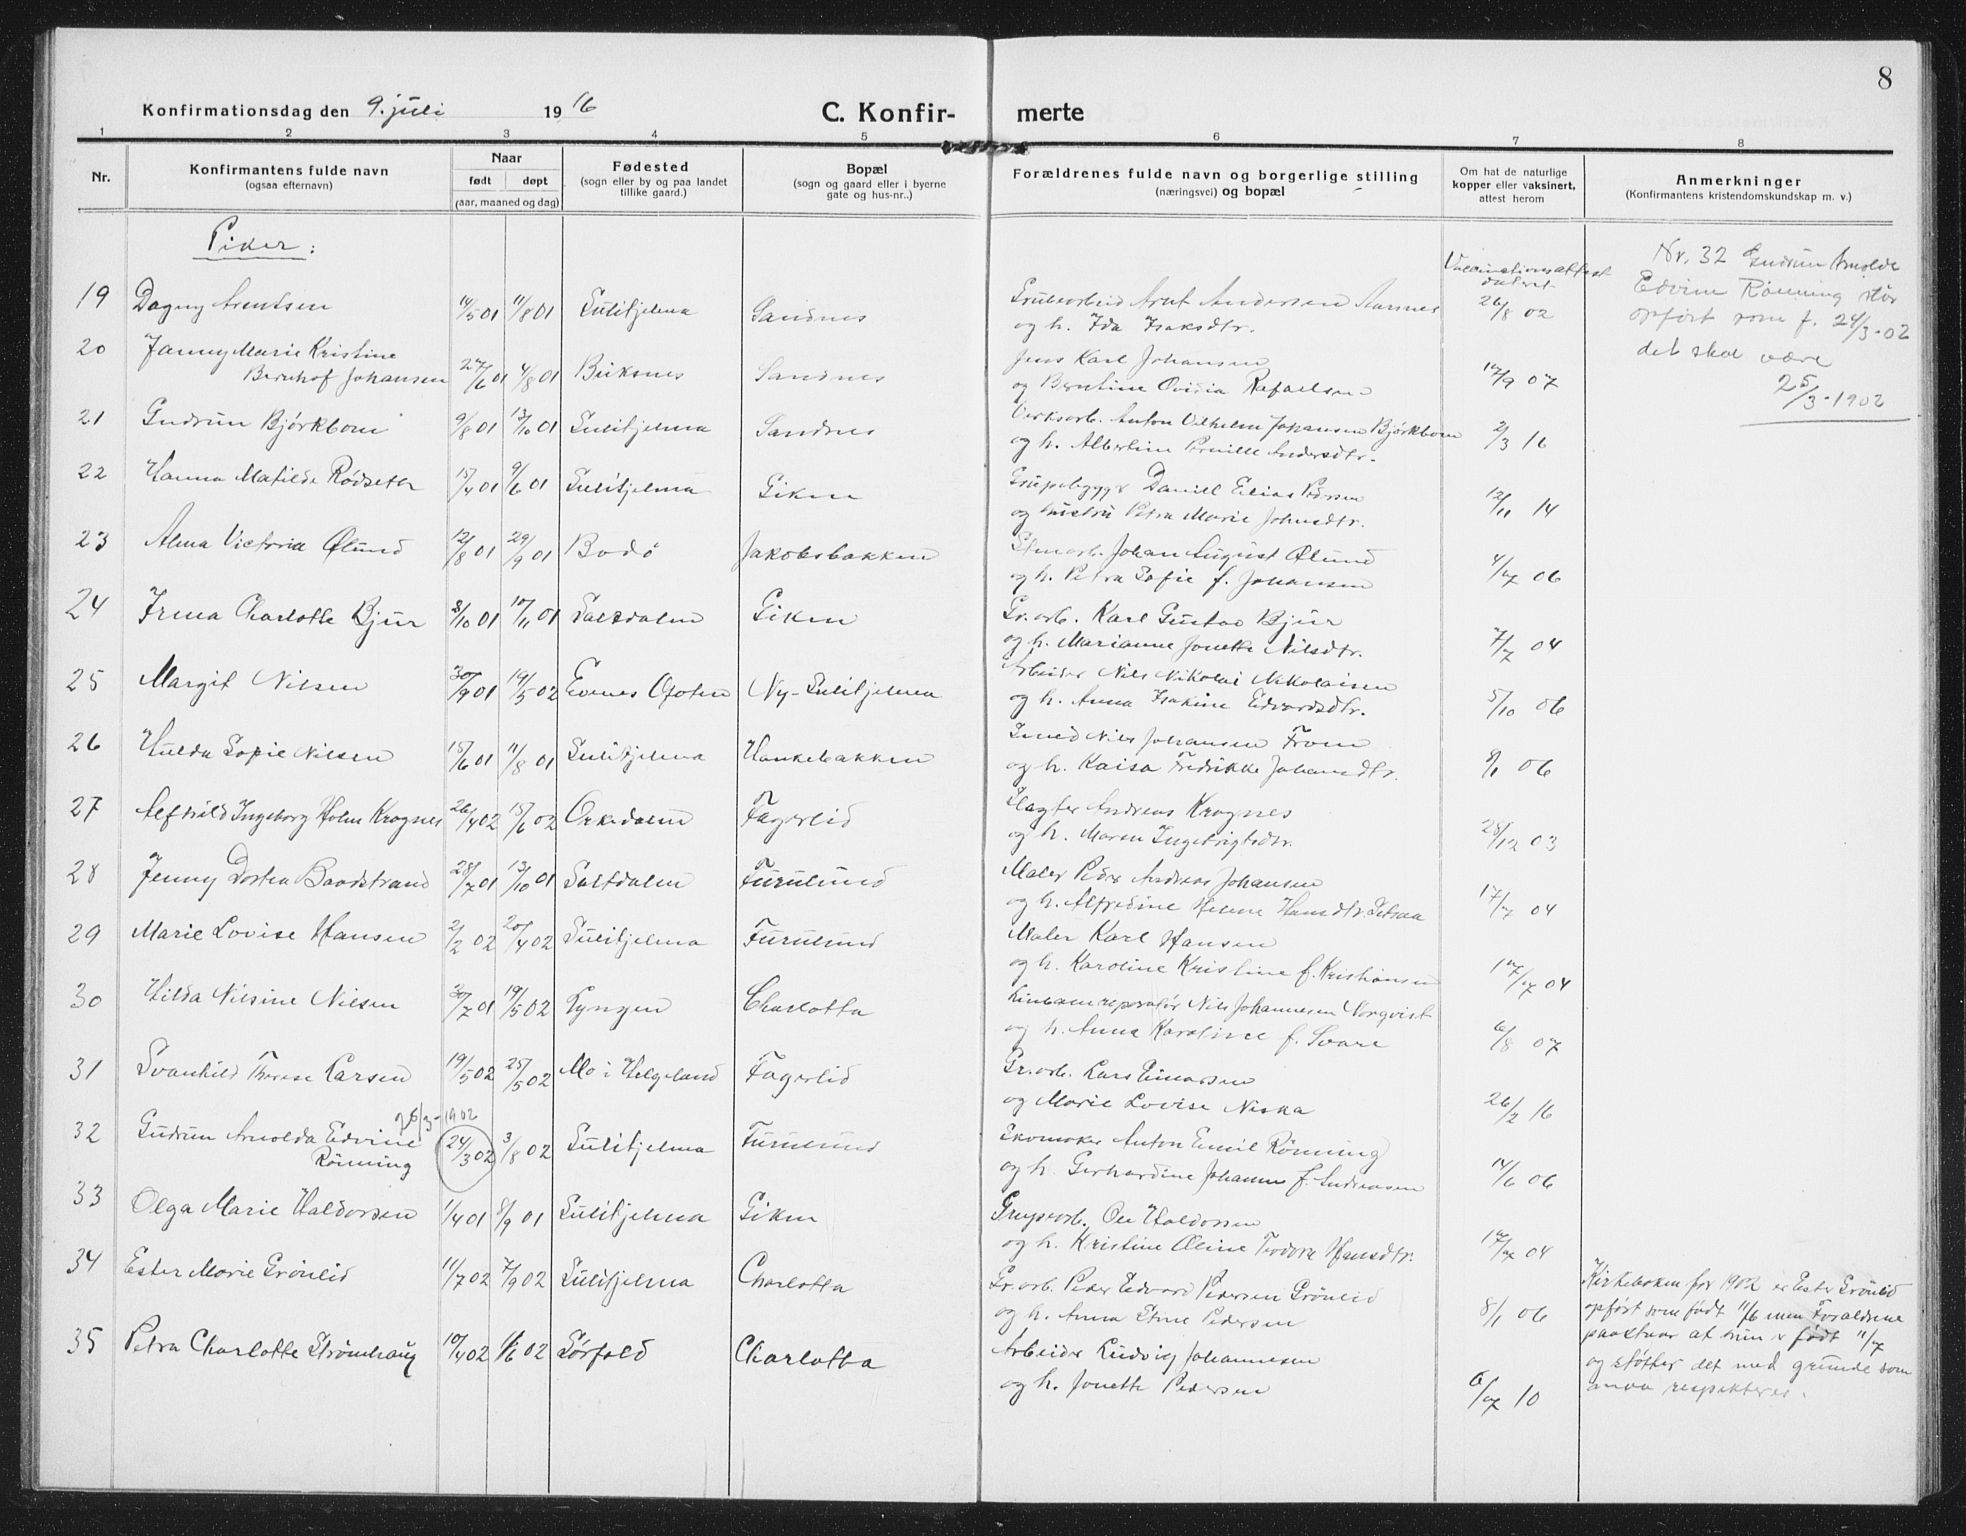 8
Konfirmationsdag den 9. juli 1916 C. Konfir- merte
1 2 3 4 5 6 7 8
Nr. Konfirmantens fulde navn (ogsaa efternavn)
Naar født døpt (aar, maaned og dag)
Fødested (sogn eller by og paa landet tillike gaard.)
Bopæl (sogn og gaard eller i byerne gate og hus-nr..)
Forældrenes fulde navn og borgerlige stilling (næringsvei) og bopæl
Om hat de naturlige kopper eller vaksinert, attest herom
Anmerkninger (Konfirmantens kristendomskundskap m. v.)
Piker:
Vaccinationsattest datert
Nr. 32 Gudrun Arnolda
Edvine Rönning står
opført som f. 24/3-02
det skal være
25/3-1902
19 Dagny Arentsen 14/5 01 11/8 01 Sulitjelma Sandnes Grubearbeid Arnt Andersen Aarnes 26/8 02
og h. Ida Isaksdtr.
20 Janny Marie Kristine
Bernhof Johansen 27/6 01 4/8 01 Sandnes Karl Johansen 17/9 07
og Berntine Ovidia Rafaelsen
21 Gudrun Bjørkbom 9/8 01 13/10 01 Sulitjelma Sandnes Verksarb. Anton Vilhelm Johansen Bjørkbom 2/3 16
og h. Albertine Pernille Andersdtr.
22 Hanna Matilde Rødseth 15/4 01 9/6 01 Sulitjelma Giken Daniel Elias Pedersen 12/11 14
og hustru Petra Marie Johnsdtr.
23 Alma Victoria Ølund 12/8 01 29/9 01 Bodö Jakobsbakken Stenarb. Johan August Ølund 4/7 06
og h. Petra Sofie f. Johansen
24 Irma Charlotte Bjur 8/10 01 17/11 01 Saltdalen Giken Gr. arb. Karl Gustav Bjur 7/7 04
og h. Marianne Jonette Nilsdtr.
25 Margit Nilsen 30/9 01 19/5 02 Evenes Ofoten Ny-Sulitjelma Arbeider Nils Nikolai Nikolaisen 5/10 06
og h. Anna Isakine Edvardsdtr.
26 Hulda Sofie Nilsen 15/6 01 11/8 01 Sulitjelma Hankebakken Smed Nils Johansen From 9/1 06
og h. Kaisa Fredrikke Johansdtr.
27 Alfhild Ingeborg Holm Krognes 26/4 02 15/6 02 Orkedalen Fagerlid Slagter Andreas Krognes 28/12 03
og h. Maren Ingebrigtsdtr.
28 Jenny Dortea Baadstrand 28/7 01 13/10 01 Saltdalen Furulund Maler Peder Andreas Johansen 17/7 04
og h. Alfredine Helene Hansdtr. Setsaa
29 Marie Lovise Hansen 2/2 02 20/4 02 Sulitjelma Furulund Maler Karl Hansen 17/7 04
og h. Karoline Kristine f. Kristiansen
30 Hilda Nilsine Nilsen 30/7 01 19/5 02 Lyngen Charlotta Linbanereparatör Nils Johannesen Norqvist 6/8 07
og h. Anna Karoline f. Svare
31 Svanhild Therese Larsen 19/5 02 25/5 02 Mo i Helgeland Fagerlid Gr. arb. Lars Einarsen 26/2 16
og Marie Lovise Niska
25/3-1902
32 Gudrun Arnolda Edvine
Rönning 24/3 02 3/8 02 Sulitjelma Furulund Skomaker Anton Emil Rönning 14/6 06
og h. Gerhardine Johanne f. Andreasen
33 Olga Marie Haldorsen 1/4 01 8/9 01 Sulitjelma Giken Grupearb. Ole Haldorsen 17/7 04
og h. Kristine Oline Teodora Hansdtr.
34 Ester Marie Grönlid 11/7 02 7/9 02 Sulitjelma Charlotta Gr. arb. Peder Edvard Pedersen Grönlid 8/1 06
og h. Anna Stine Pedersen
Kirkeboken for 1902 er Ester Grönlid
opført som født 11/6 men Foraldrene
paastaar at hun er født 11/7
og støtter det med grunde som
maa respekteres.
35 Petra Charlotte Strömhaug 10/4 02 1/6 02 Sørfold Charlotta Arbeider Ludvig Johannesen 6/7 10
og h. Jonette Pedersen